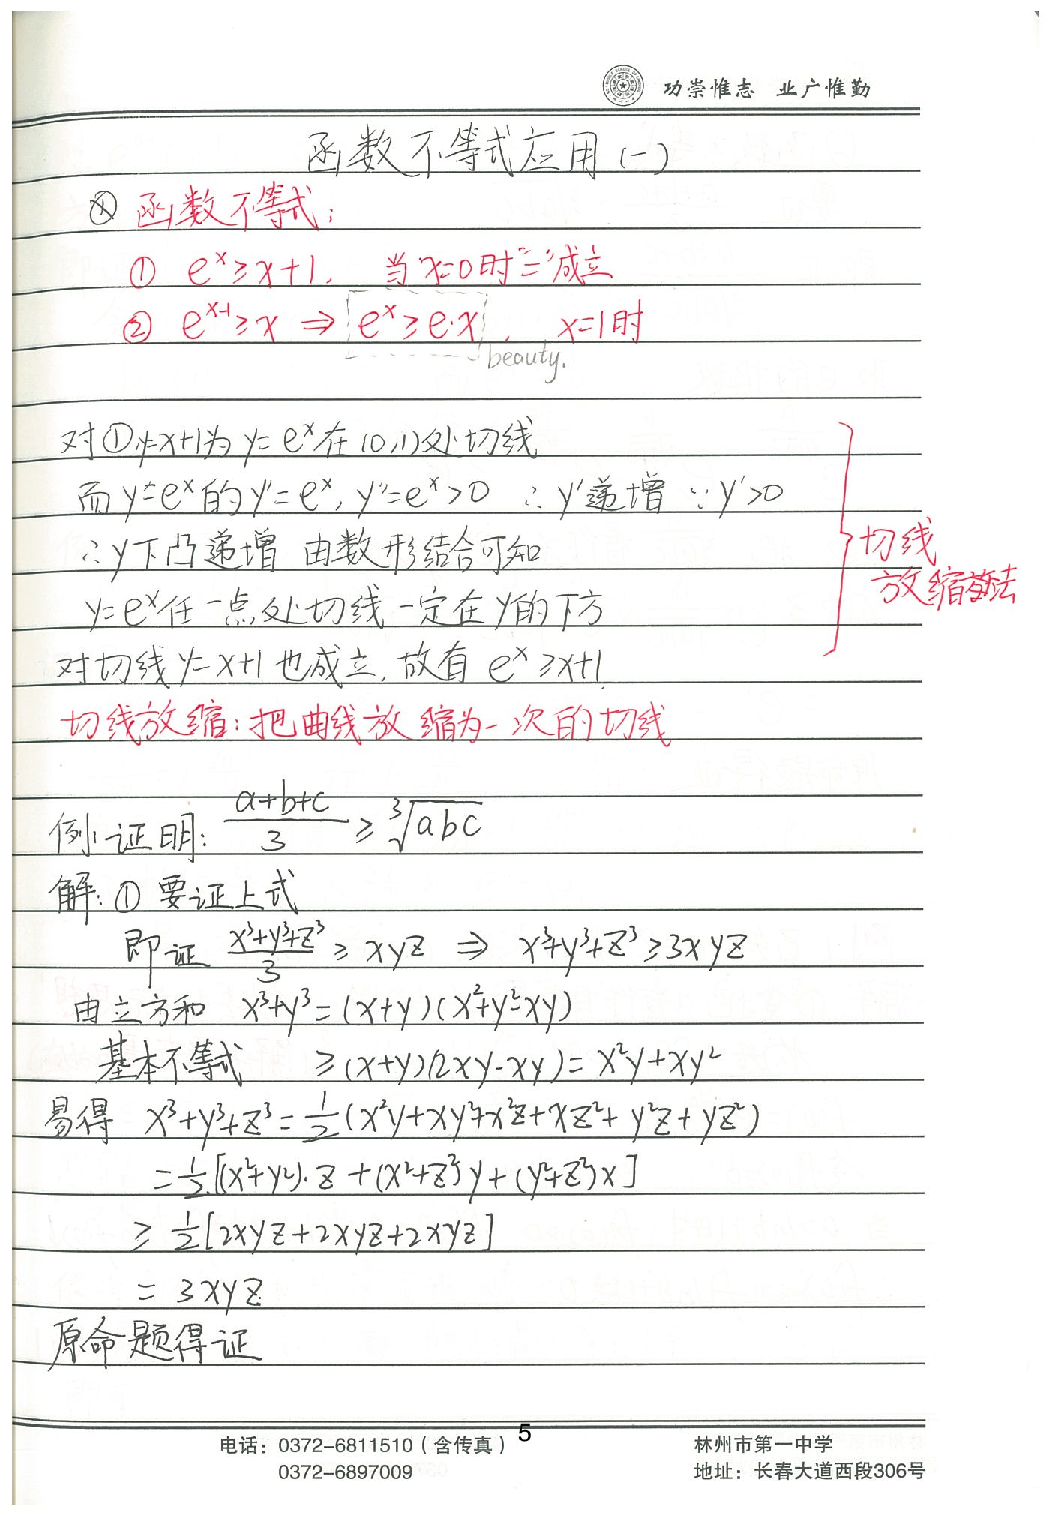 功崇惟志 业广惟勤
函数不等式应用(一)
函数不等式:
① eˣ≥x+1, 当x=0时"="成立
② eˣ⁻¹≥x ⇒ eˣ≥e·x, x=1时
beauty.
对①y=x+1为y=eˣ在(0,1)处切线
而y=eˣ的y'=eˣ, y''=eˣ>0 ∴y'递增 ∵y'>0
∴y下凸递增 由数形结合可知
y=eˣ任一点处切线一定在y的下方
对切线y=x+1也成立, 故有 eˣ≥x+1
切线
放缩法
切线放缩:把曲线放缩为一次的切线
例1 证明: (a+b+c)/3 ≥ ∛(abc)
解:① 要证上式
即证 (x³+y³+z³)/3 ≥ xyz ⇒ x³+y³+z³≥3xyz
由立方和 x³+y³=(x+y)(x²+y²-xy)
基本不等式 ≥(x+y)(2xy-xy)=x²y+xy²
易得 x³+y³+z³=1/2(x²y+xy²+x²z+xz²+y²z+yz²)
=1/2[(x²+y²)·z+(x²+z²)y+(y²+z²)x]
≥ 1/2[2xyz+2xyz+2xyz]
= 3xyz
原命题得证
5
电话:0372-6811510(含传真) 林州市第一中学
0372-6897009 地址:长春大道西段306号